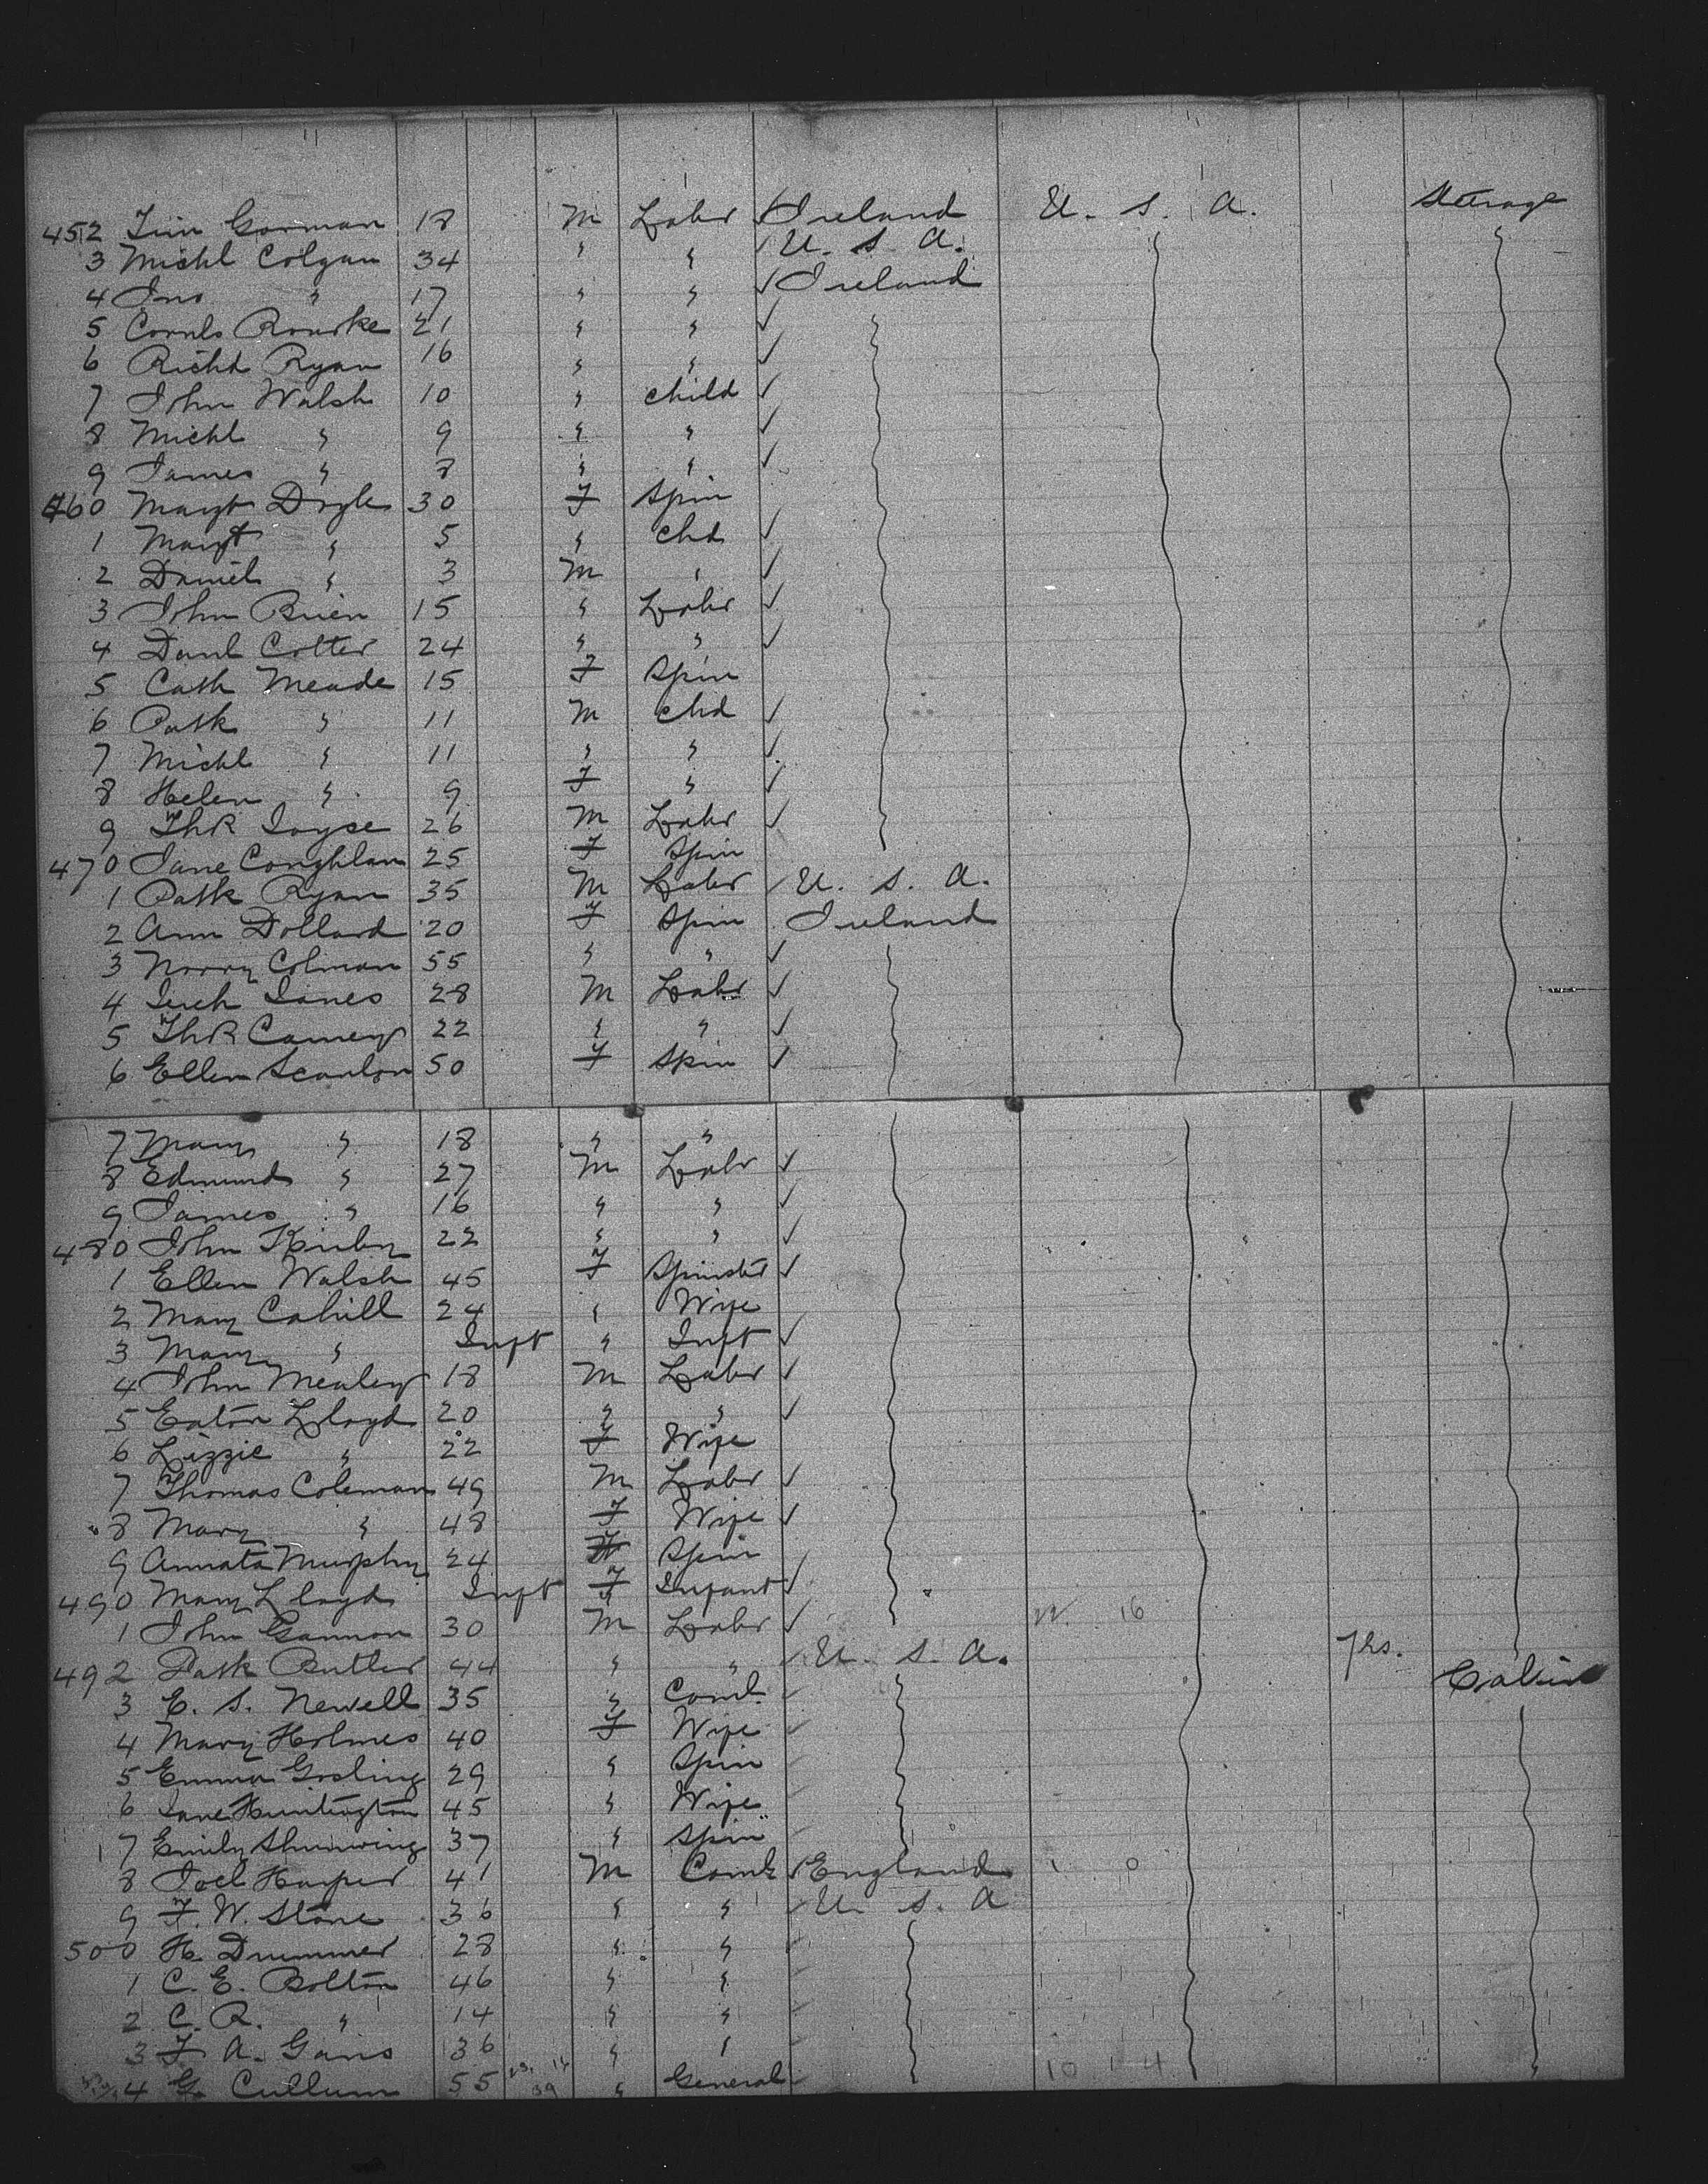 452 Tim Gorman 18 M Labr ✓ Ireland U. S. A. Steerage
3 Michl Colgan 34 " " ✓ U. S. A.
4 Jno " 17 " " ✓ Ireland
5 Cornls Rourke 21 " " ✓
6 Richd Ryan 16 " " ✓
7 John Walsh 10 " child ✓
8 Michl " 9 " " ✓
9 James " 8 " " ✓
460 Margt Doyle 30 F Spin
1 Margt " 5 " Chd ✓
2 Daniel " 3 M " ✓
3 John Brien 15 " Labr ✓
4 Danl Cotter 24 " " ✓
5 Cath Meade 15 F Spin
6 Patk " 11 M Chd ✓
7 Michl " 11 " " ✓
8 Helen " 9 F " ✓
9 Thos Joyse 26 M Labr ✓
470 Jane Coughlan 25 F Spin
1 Patk Ryan 35 M Labr ✓ U. S. A.
2 Ann Dollard 20 F Spin Ireland
3 Norry Colman 55 " " ✓
4 Jerh Janes 28 M Labr ✓
5 Thos Carney 22 " " ✓
6 Ellen Scanlon 50 F Spin ✓
7 Mary " 18 " "
8 Edmund " 27 M Labr ✓
9 James " 16 " " ✓
480 John Kirby 22 " " ✓
1 Ellen Walsh 45 F Spinstr ✓
2 Mary Cahill 24 " Wife
3 Mary " Inft " Inft ✓
4 John Mealey 18 M Labr ✓
5 Eaton Lloyd 20 " " ✓
6 Lizzie " 22 F Wife
7 Thomas Coleman 49 M Labr ✓
8 Mary " 48 F Wife ✓
9 Annata Murphy 24 F Spin
490 Mary Lloyd Inft F Infant ✓
1 John Gannon 30 M Labr ✓ 16
492 Patk Butler 44 " " ✓ U. S. A. 7hs.
3 E. S. Newell 35 " Coml ✓ Cabin
4 Mary Holmes 40 F Wife ✓
5 Emma Gosling 29 " Spin
6 Jane Huntington 45 " Wife
7 Emily Shumwing 37 " Spin ✓
8 Joel Harper 41 M Coml ✓ England 0
9 F. W. Stone 36 " " ✓ U. S. A
500 H. Drummer 28 " " ✓
1 C. E. Bolton 46 " " ✓
2 C. R. " 14 " " ✓
3 F. A. Gains 36 " " ✓
4 G. Cullum 55 " General ✓ 10 14